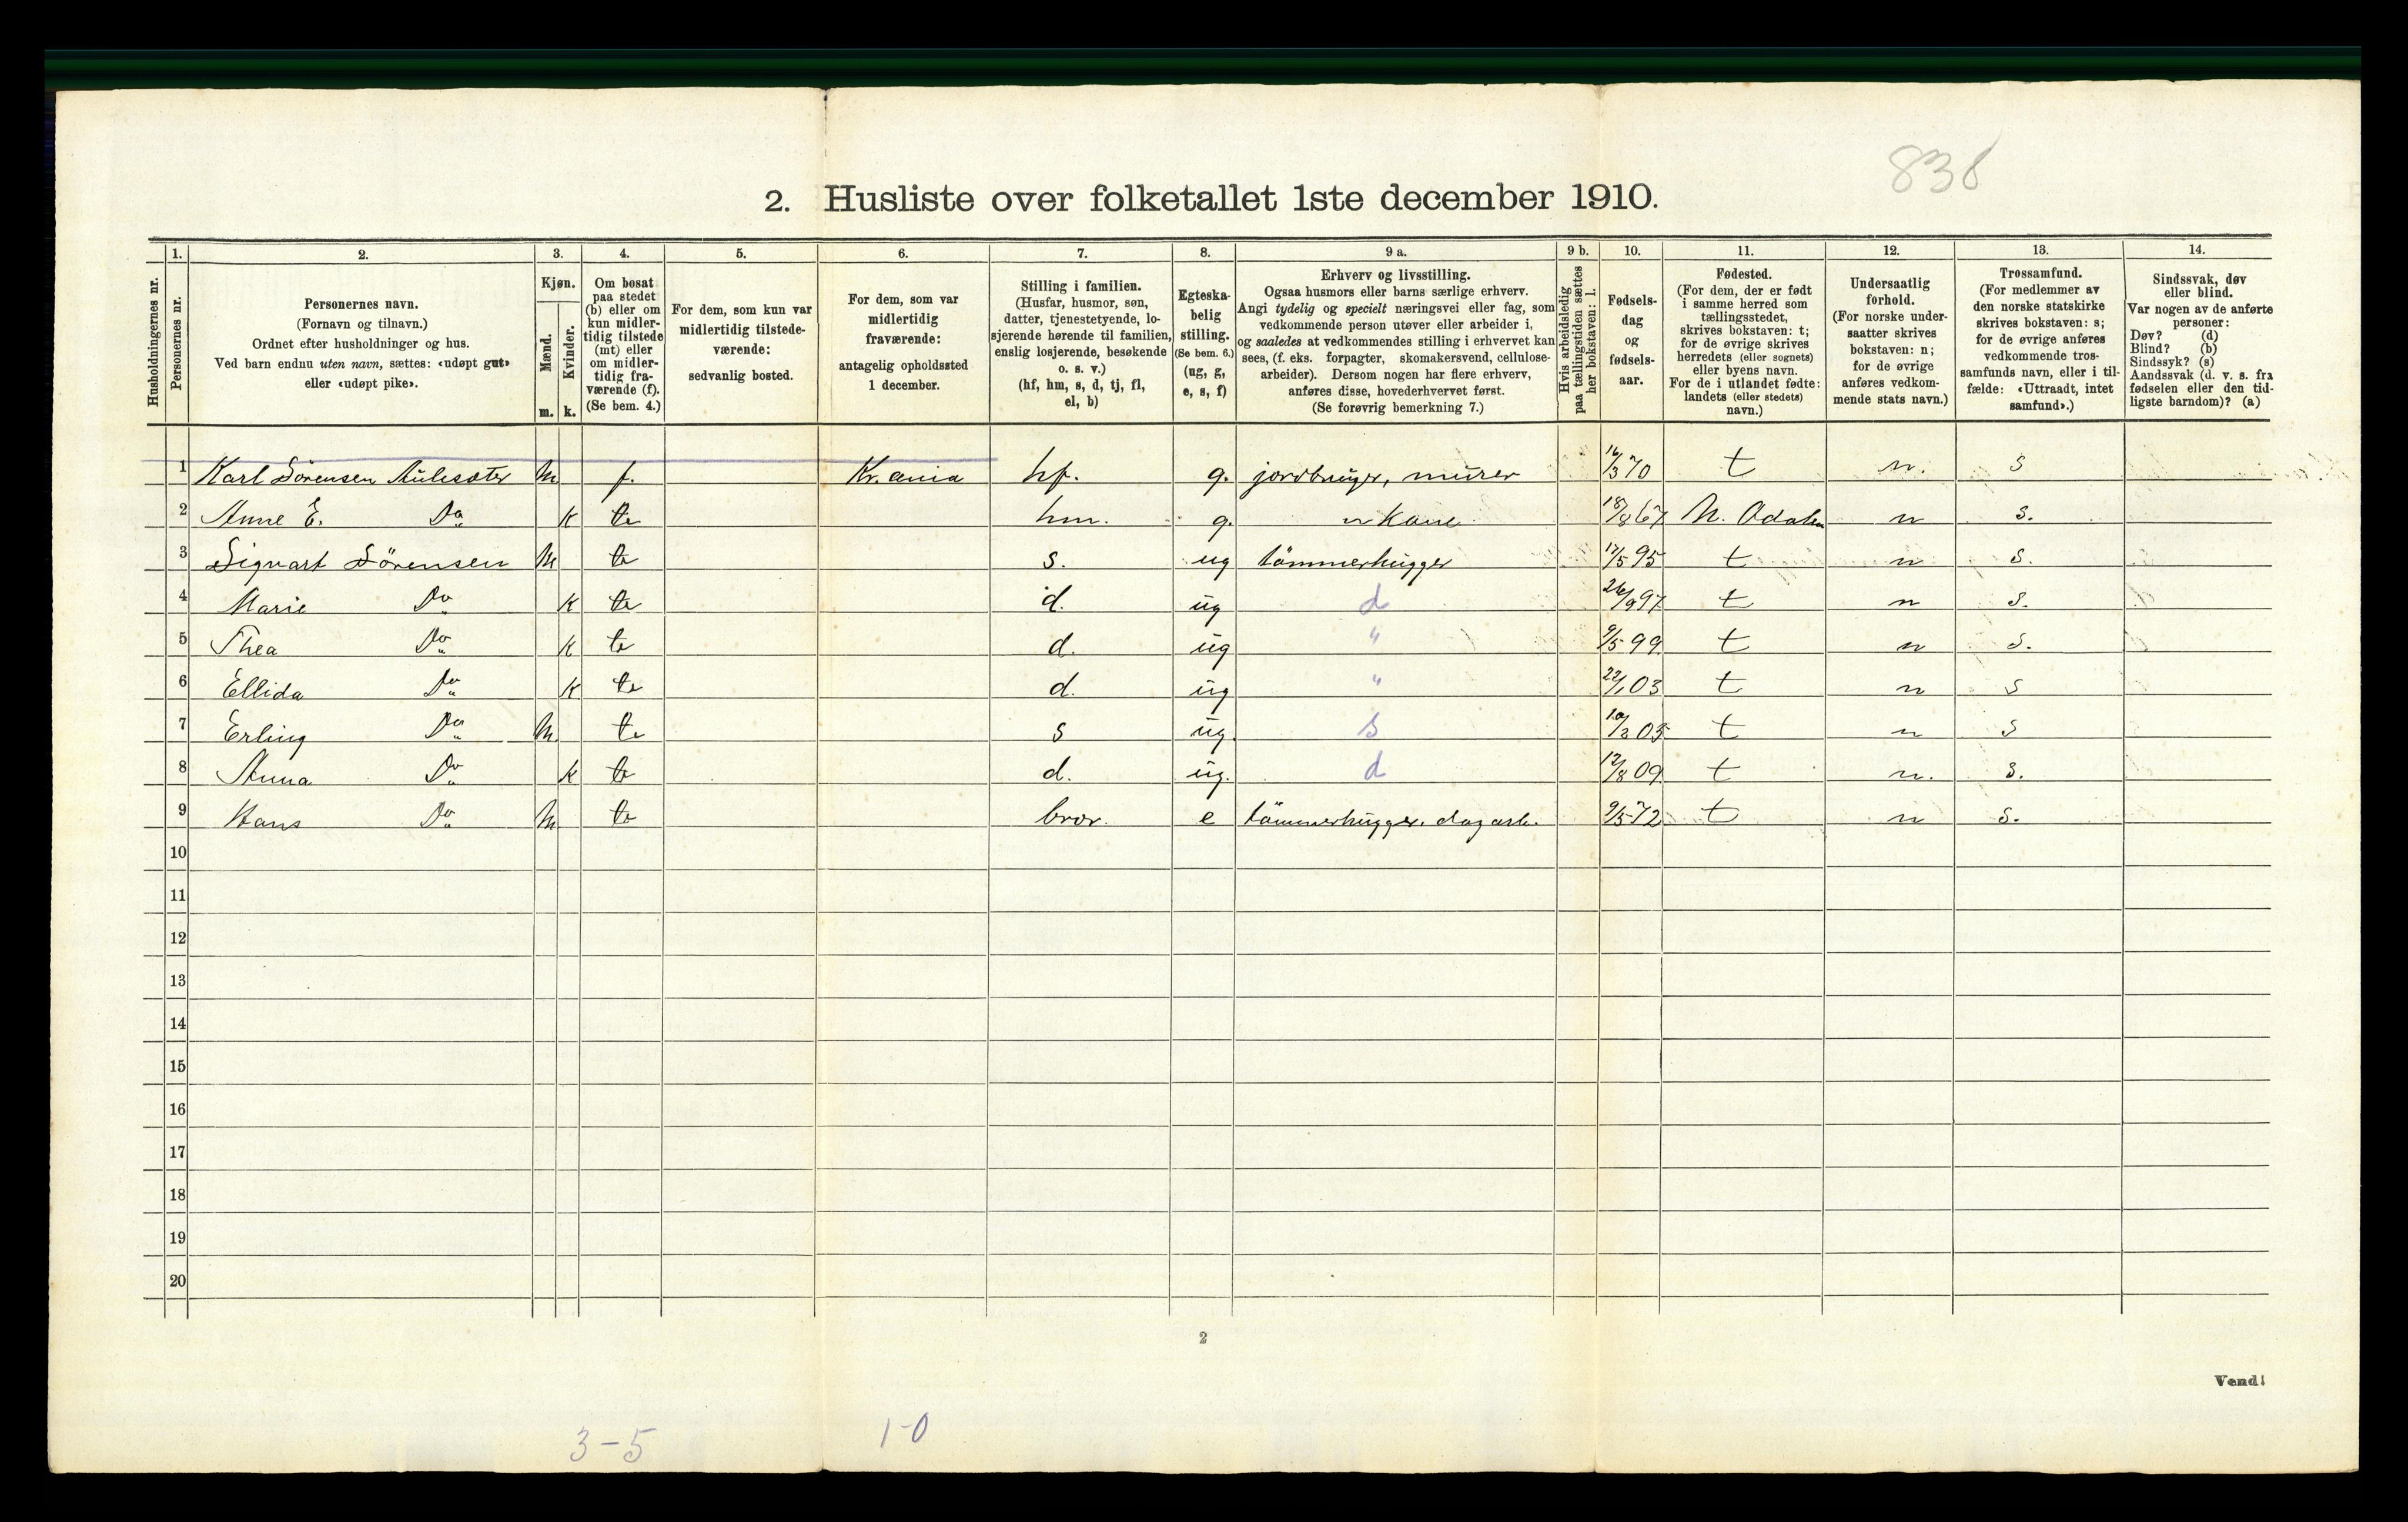 838
2. Husliste over folketallet 1ste december 1910.
1. 2. 3. 4. 5. 6. 7. 8. 9 a. 9 b. 10. 11. 12. 13. 14.
Husholdningernes nr.
Personernes nr.
Personernes navn.
(Fornavn og tilnavn.)
Ordnet efter husholdninger og hus.
Ved barn endnu uten navn, sættes: «udøpt gut»
eller «udøpt pike».
Kjøn.
Mænd.
m.
Kvinder.
k.
Om bosat
paa stedet
(b) eller om
kun midler-
tidig tilstede
(mt) eller
om midler-
tidig fra-
værende (f).
(Se bem. 4.)
For dem, som kun var
midlertidig tilstede-
værende:
sedvanlig bosted.
For dem, som var
midlertidig
fraværende:
antagelig opholdssted
1 december.
Stilling i familien.
(Husfar, husmor, søn,
datter, tjenestetyende, lo-
sjerende hørende til familien,
enslig losjerende, besøkende
o. s. v.)
(hf, hm, s, d, tj, fl,
el, b)
Egteska-
belig
stilling.
(Se bem. 6.)
(ug, g,
e, s, f)
Erhverv og livsstilling.
Ogsaa husmors eller barns særlige erhverv.
Angi tydelig og specielt næringsvei eller fag, som
vedkommende person utøver eller arbeider i,
og saaledes at vedkommendes stilling i erhvervet kan
sees, (f. eks. forpagter, skomakersvend, cellulose-
arbeider). Dersom nogen har flere erhverv,
anføres disse, hovederhvervet først.
(Se forøvrig bemerkning 7.)
Hvis arbeidsledig
paa tællingstiden sættes
her bokstaven: l.
Fødsels-
dag
og
fødsels-
aar.
Fødested.
(For dem, der er født
i samme herred som
tællingsstedet,
skrives bokstaven: t;
for de øvrige skrives
herredets (eller sognets)
eller byens navn.
For de i utlandet fødte:
landets (eller stedets)
navn.)
Undersaatlig
forhold.
(For norske under-
saatter skrives
bokstaven: n;
for de øvrige
anføres vedkom-
mende stats navn.)
Trossamfund.
(For medlemmer av
den norske statskirke
skrives bokstaven: s;
for de øvrige anføres
vedkommende tros-
samfunds navn, eller i til-
fælde: «Uttraadt, intet
samfund».)
Sindssvak, døv
eller blind.
Var nogen av de anførte
personer:
Døv? (d)
Blind? (b)
Sindssyk? (s)
Aandssvak (d. v. s. fra
fødselen eller den tid-
ligste barndom)? (a)
1 Karl Sörensen m f. Kr.ania hf. g. jordbruger, murer 16/3 70 t n. s
2 Anne E. Do k hm. g. Kone 18/8 67 N. Odalen n s.
3 Sigvart Sörensen m s. ug tömmerhugger 17/5 95 t n s.
4 Marie Do k d. ug d 26/9 97 t n s.
5 Thea Do k d. ug " 9/5 99 t n s.
6 Ellida Do k d. ug " 22/1 03 t n s
7 Erling Do m. s ug. s t n s
8 Anna Do k d. ug. d 12/8 09 t n. s.
9 Hans Do m. bror. e tömmerhugger, dagarb. 9/5 72 t n s.
10
11
12
13
14
15
16
17
18
19
20
2
Vend!
3-5 1-0